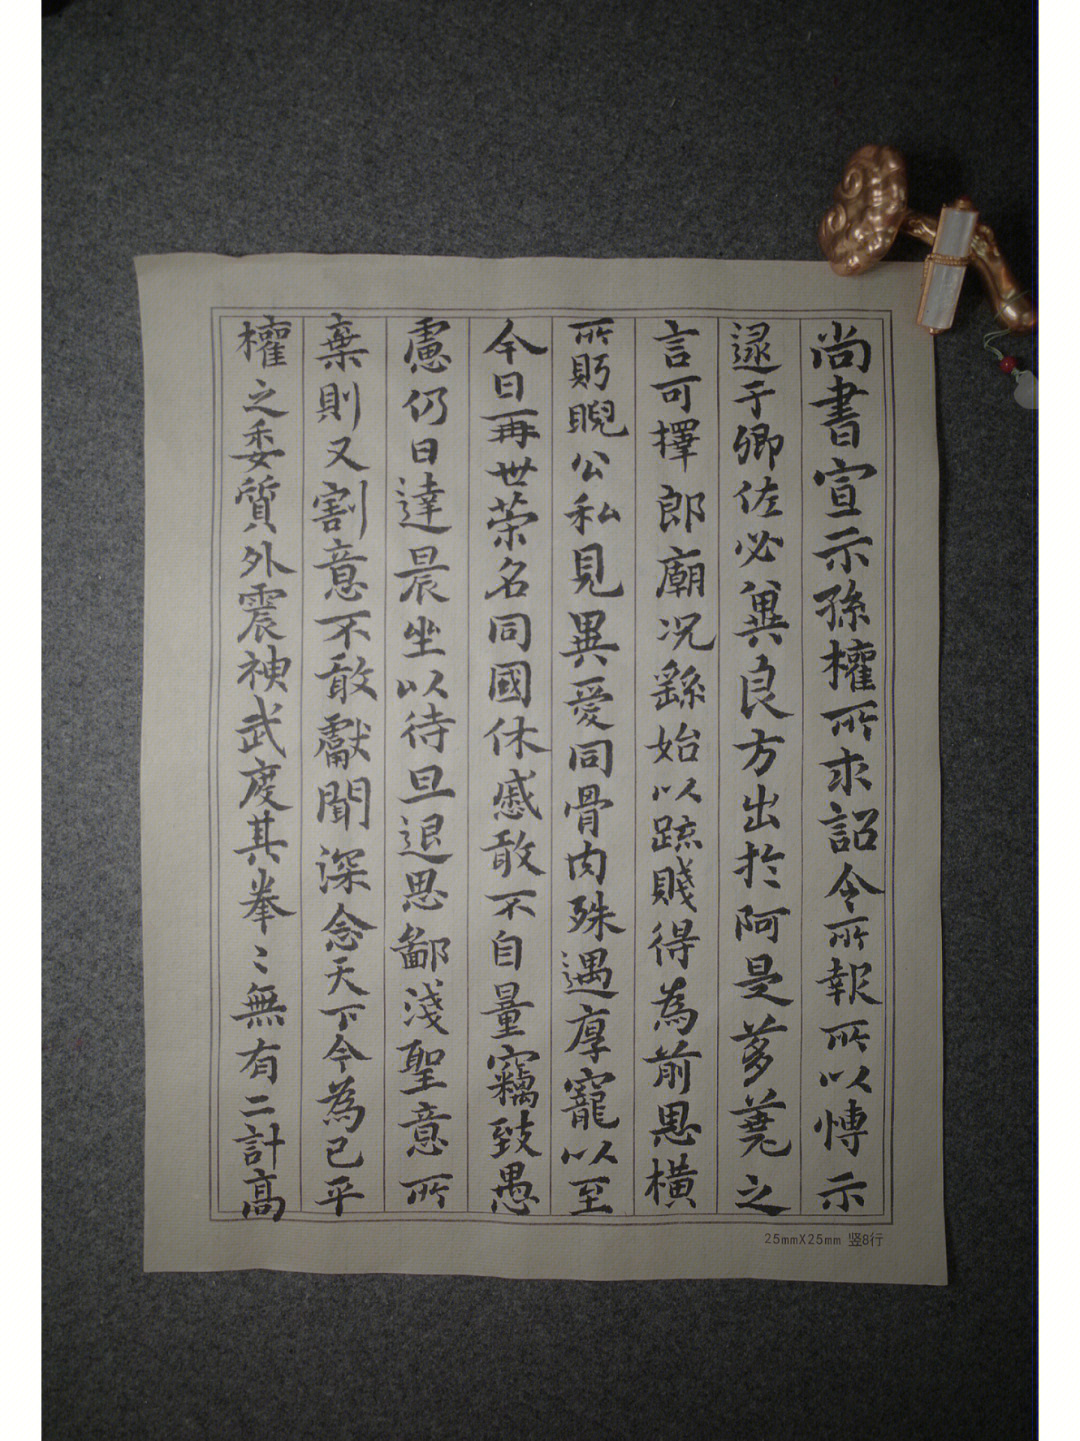 尚書宣示孫權所求詔令所報所以博示
逮于卿佐必冀良方出於阿是芻蕘之
言可擇郎廟况繇始以疏賤得為前恩橫
所眄睨公私見異愛同骨肉殊遇厚寵以至
今日再世荣名同國休慼敢不自量竊致愚
慮仍日達晨坐以待旦退思鄙淺聖意所
棄則又割意不敢獻聞深念天下今為已平
權之委質外震神武度其拳〻無有二計高
25mmX25mm 竖8行